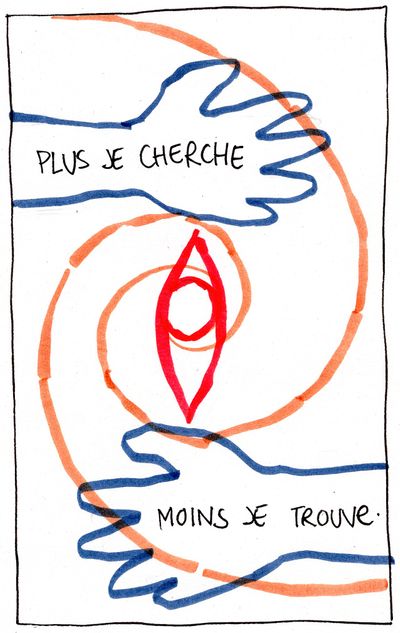 PLUS JE CHERCHE
MOINS JE TROUVE.